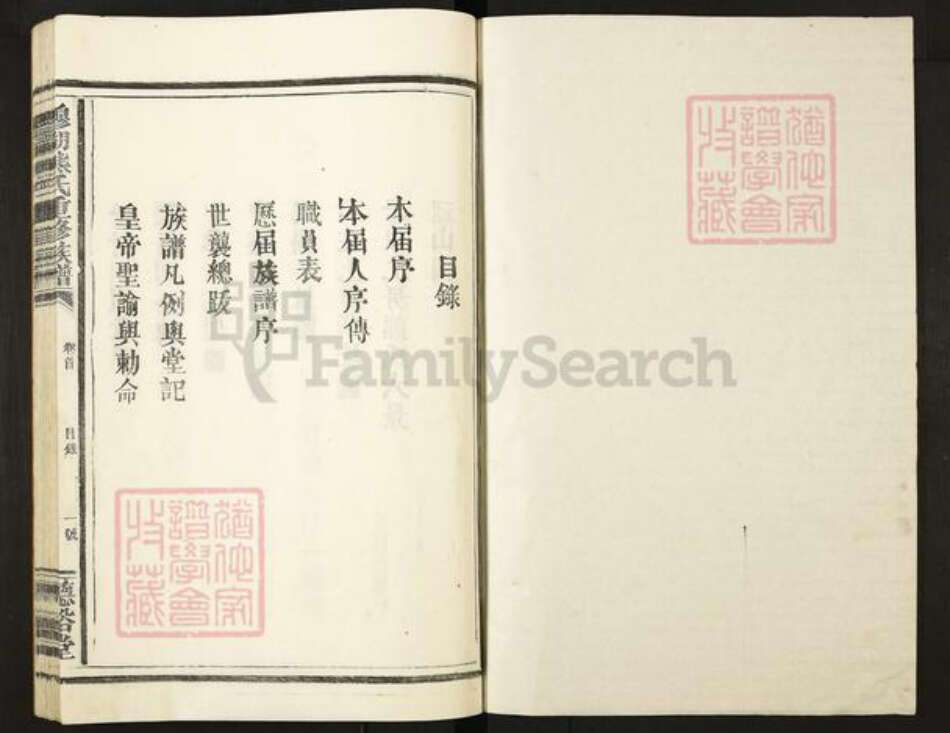 目錄
本届序
本届人序傳
職員表
歷届族譜序
世襲總跋
族譜凡例與堂記
皇帝聖諭與勅命
熊氏重修族譜
卷首
目錄
一號
猶他家
譜學會
收藏
猶他家
譜學會
收藏
FamilySearch